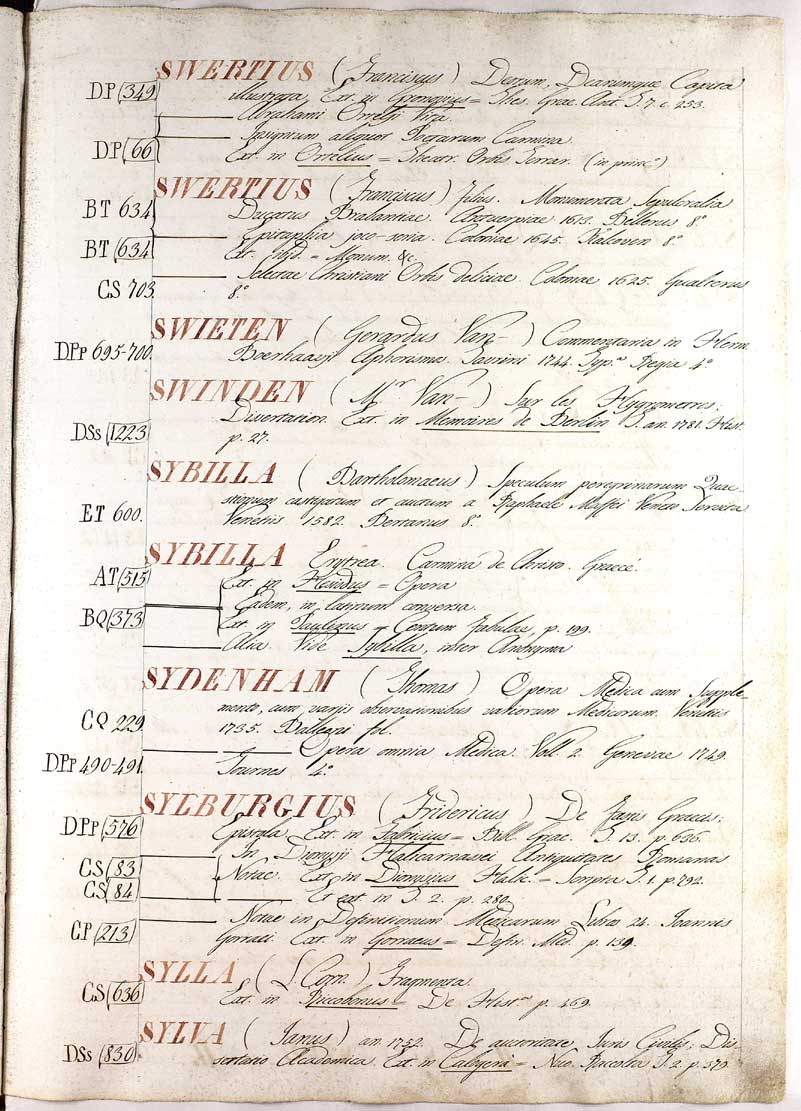 DP (349) SWERTIUS (Franciscus) Deorum, Dearumque Capita
illustrata. Ext. in Gronovius = Thes. Graec. Ant. T. 7. c. 253.
Abrahami Ortelii Vita.
Insignium aliquot Poetarum Carmina.
DP (66) Ext. in Ortelius = Theatr. Orbis Terrar. (in princ.º)
SWERTIUS (Franciscus) filius. Monumenta Sepulcralia
BT 634 Ducatus Brabantiae. Antwerpiae 1613. Bellerus 8º
Epitaphia joco-seria. Coloniae 1645. Kalcoven 8º
BT (634) Ext. Ibid. = Monum. &c.
Selectae Christiani Orbis deliciae. Coloniae 1625. Gualterus
CS 703. 8º.
SWIETEN (Gerardus Van-) Commentaria in Herm.
DPp 695-700. Boerhaavii Aphorismos. Taurini 1744. Typ.ª Regia 4º
SWINDEN (Mr. Van-) Sur les Hygrometres;
Dissertation. Ext. in Memoires de Berlin T. an. 1781. Hist.
DSs (1223) p. 27.
SYBILLA (Bartholomaeus) Speculum peregrinarum Quae-
stionum castigatum et auctum a Raphaele Maffei Veneto Servita
ET 600. Venetiis 1582. Bertanus 8º.
SYBILLA Erytrea. Carmina de Christo. Graecè
AT (515) Ext. in Hesiodus = Opera
Eadem, in latinum conversa.
BQ (373) Ext. in = Centum fabulae, p. 199.
Alia. Vide Sybilla, inter Anonyma
SYDENHAM (Thomas) Opera Medica cum Supple-
mento, cum varijs observationibus variorum Medicorum. Venetiis
CQ 229. 1735. Balleoni fol.
Opera omnia Medica. Voll. 2. Genevae 1749.
DPp 490-491. Tournes 4º
SYLBURGIUS (Fridericus) De Graecis;
DPp (576) Epistola. Ext. in Fabricius = Bibl. Graec. T. 13. p. 636.
In Dionysij Halicarnasei Antiquitates Romanas
CS (83) Notae. Ext. in Dionysius Halic. = Scripta T. 1. p. 792.
CS (84) Et ext. in T. 2. p. 280.
Notae in Definitionum Medicarum Libros 24. Joannis
CP (213) Gorraei. Ext. in Gorraeus = Defin. Med. p. 139.
SYLLA (L. Corn.) Fragmenta.
CS (636) Ext. in Riccobonus = De Hist.ª p. 469.
SYLVA (Janus) an. 1752. De auctoritate Juris Civilis; Dis-
DSs (830) sertatio Academica. Ext. in Calogerà = Nuo. Raccolta T. 2. p. 379